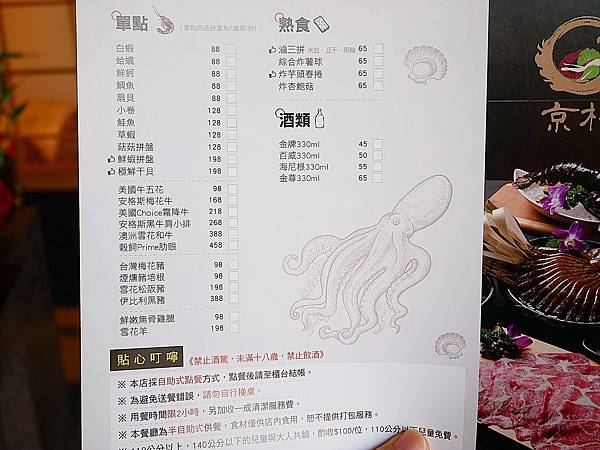 單點 (單點肉品份量為6盎司/份)
白蝦 88
蛤蠣 88
鮮蚵 88
鯛魚 88
扇貝 88
小卷 128
鮭魚 128
草蝦 128
菇菇拼盤 128
鮮蝦拼盤 198
極鮮干貝 198
美國牛五花 98
安格斯梅花牛 168
美國Choice霜降牛 218
安格斯黑牛肩小排 268
澳洲雪花和牛 388
穀飼Prime肋眼 458
台灣梅花豬 98
煙燻豬培根 98
雪花松阪豬 198
伊比利黑豬 388
鮮嫩無骨雞腿 98
雪花羊 198
熟食
滷三拼 米血、豆干、黑輪 65
綜合炸薯球 65
炸芋頭春捲 65
炸杏鮑菇 65
酒類
金牌330ml 45
百威330ml 50
海尼根330ml 55
金尊330ml 65
貼心叮嚀 《禁止酒駕，未滿十八歲，禁止飲酒》
※ 本店採自助式點餐方式，點餐後請至櫃台結帳。
※ 為避免送餐錯誤，請勿自行換桌。
※ 用餐時間限2小時，另加收一成清潔服務費。
※ 本餐廳為半自助式供餐，食材僅供店內食用，恕不提供打包服務。
※ 110公分以上，140公分以下的兒童與大人共鍋，酌收$100/位，110公分以下兒童免費。
京